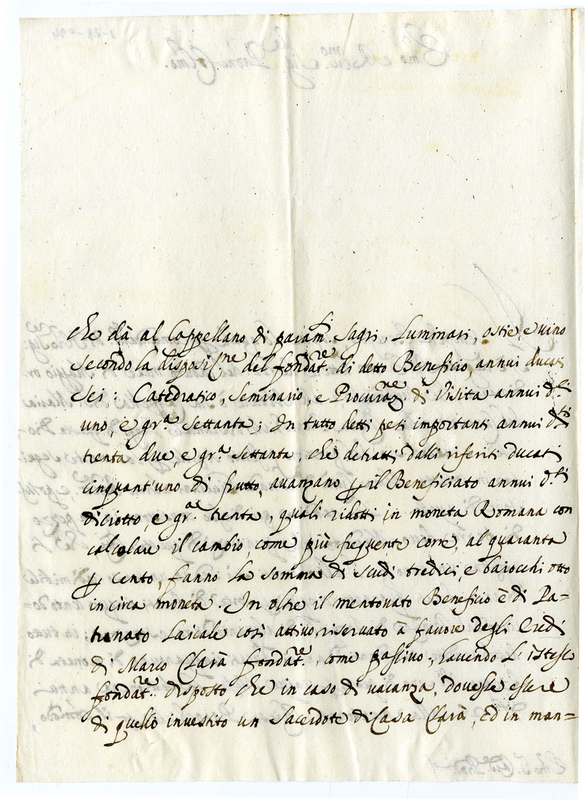 che dà al Cappellano di param.ti Sagri, Luminari, ostie, e vino
secondo la disposiz.ne del fondat.re di detto Beneficio, annui ducati
sei; Catedratico, Seminario, e Procuraz.ne di Visita annui d.ti
uno, e gr.a settanta; In tutto detti pesi importanti annui d.ti
trenta due, e gr.a settanta, che detratti dalli riferiti ducati
cinquant'uno di frutto, avanzano p il Beneficiato annui d.ti
diciotto, e gr.a trenta, quali ridotti in moneta Romana con
calcolare il cambio, come più frequente corre, al quaranta
p cento, fanno la somma di scudi tredici, e baiocchi otto
in circa moneta. In oltre il mentovato Beneficio è di Pa-
tronato Laicale così attivo, riservato à favore degli Eredi
di Marco Clarà fondat.re, come passivo, havendo l'istesso
fondat.re disposto che in caso di vacanza, dovesse essere
di quello investito un Sacerdote di Casa Clarà, ed in man=